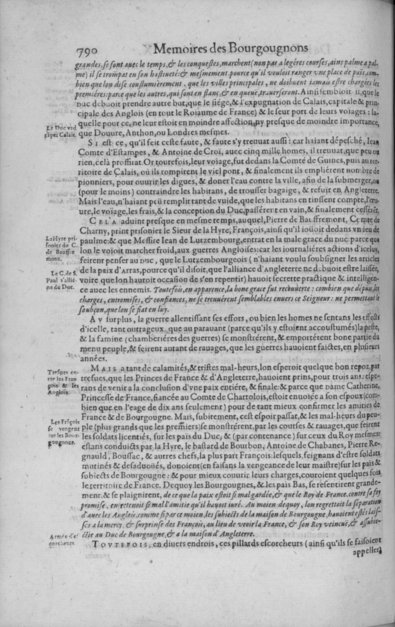 790 Memoires des Bourgougnons
grandes, se sont avec le temps, & les conquestes,
me) il se trompe en son & mesmement pource qu'il vouloit ranger une place de paix,
bien que
premiers: parce que les autres, qui sont en flanc, & en queuë, Ainsi il, que le
Duc debvoit prendre autre but, que le siége, & l'expugnation de Calais, capitale & prin-
cipale des Anglois (en tout le Royaume de France) & le seur port de leurs voiages: la-
quelle pource, ne leur estoit en moindre affection, ny presque de moindre importance,
que Douvre, Anthon, ou Londres mesmes.
Le Duc
Calais.
SI est-ce, qu'il feit ceste faute, & faute s'y trenuat aussi: car haiant dépesché, Jean
Comte d'Estampes, & Antoine de Croï, avec cinq mille hommes, il
rien, celà profitat. Or toutefois, leur voiage, fut dedans la Comté de Guines, puis au ter-
ritoire de Calais, où ils rompirent le viel pont, & finalement ils emploiérent nombre de
pionniers, pour ouvrir les digues, & doner l'eau contre la ville, afin de la submerger, ou
(pour le moins) contraindre les habitans, de trousser bagaige, & refuit en Angleterre.
Mais l'eau, n'haiant peü remplir tant de vuide, que les habitans en tinssent compte,
re, le voiage, les frais, & la conception du Duc, passérent en vain, & finalement cessérent.
CELA advint presque en mesme temps, auquel, Pierre de Bauffremont, Comte de
Charny, print prisonier le Sieur de la Hyre, François, ainsi qu'il jouoit dedans un jeu de
paulme: & que Messire Jean de Luxembourg, entrat en la male grace du Duc parce que
lon le voioit marcher froid, aux guerres Angloises: car les journaliéres actions d'icelui,
feirent penser au Duc, que le Luxembourgeois (n'haiant voulu soubsigner les articles
de la paix d'Arras, pource qu'il disoit, que l'alliance d'Angleterre ne d'
voire que lon hauroit occasion de s'en repentir) hauoit secrette practique & intelligen-
ce avec les ennemis. Toutesfois, en apparence, la bone grace fut recouverte: combien que
charges, entremises, & confiances, ne se treuvérent semblables envers ce Seigneur: ne permettant
souben, que lon se fiat en luy.
La Hyre pri-
sonier de C.
de Bauffre-
mont.
Le C. de S.
Paul
du Duc.
AU surplus, la guerre allentissant ses effors, ou bien les homes ne sentans les effects
d'icelle, tant outrageux, que au paravant (parce qu'ils y estoient accoustumés) la peste,
& la famine (chambriéres des guerres) se monstrérent, & emportérent bone partie du
menu peuple, & feirent autant de ravages, que les guerres hauoient faictes, en plusieurs
années.
MAIS atant de calamités, & tristes mal-heurs, lon esperoit quelque bon repoz, par
tresves, que les Princes de France & d'Angleterre, hauoient prins, pour trois ans: espe-
rans de venir a la conclusion d'une paix entiére, & finale: & parce que dame Catherine,
Princesse de France, fiancée au Comte de Charolois, estoit envoiée a son espoux (com-
bien que en l'eage de dix ans seulement) pour de tant mieux confirmer les amitiés de
France & de Bourgougne. Mais, subitement, cest espoir passat, & les mal-heurs du peu-
ple (plus grands que les premiers) se monstrérent, par les courses & ravages, que feirent
les soldats licentiés, sur les païs du Duc, & (par contenance) sur ceux du Roy mesme:
estans conduicts par la Hyre, le bastard de Bourbon, Antoine de Chabanes, Pierre Re-
gnauld, Boussac, & autres chefs, la plus part François: lesquels, feignans d'estre soldats
mutinés & desaduoués, donoient (en faisans la vengeance de leur maistre) sur les païs &
subiects de Bourgougne: & pour mieux couvrir leurs charges, couroient quelques fois
le territoire de France. Dequoy les Bourgougnons, & les païs Bas, se resentirent grande-
ment: & se plaignirent, de ce que la paix estoit si mal gardée, & que le Roy de France, contre sa foy
promise, entretenoit si mal l'amitié qu'il hauoit juré. Au moien dequoy, lon regrettoit la séparation
d'avec les Anglois, comme si par ce moien, les subiects de la maison de Bourgougne, hauoient estés lais-
sés a la mercy, & surprinse des François, au lieu de veoir la France, & son Roy veincu, & assubie-
ctie au Duc de Bourgougne, & a la maison d'Angleterre.
Tresves en-
tre les Fran-
çois & les
Anglois.
Les François
se vengent
sur les Bour-
gougnons.
TOUTEFOIS, en divers endroits, ces pillards escorcheurs (ainsi qu'ils se faisoient
appeller)